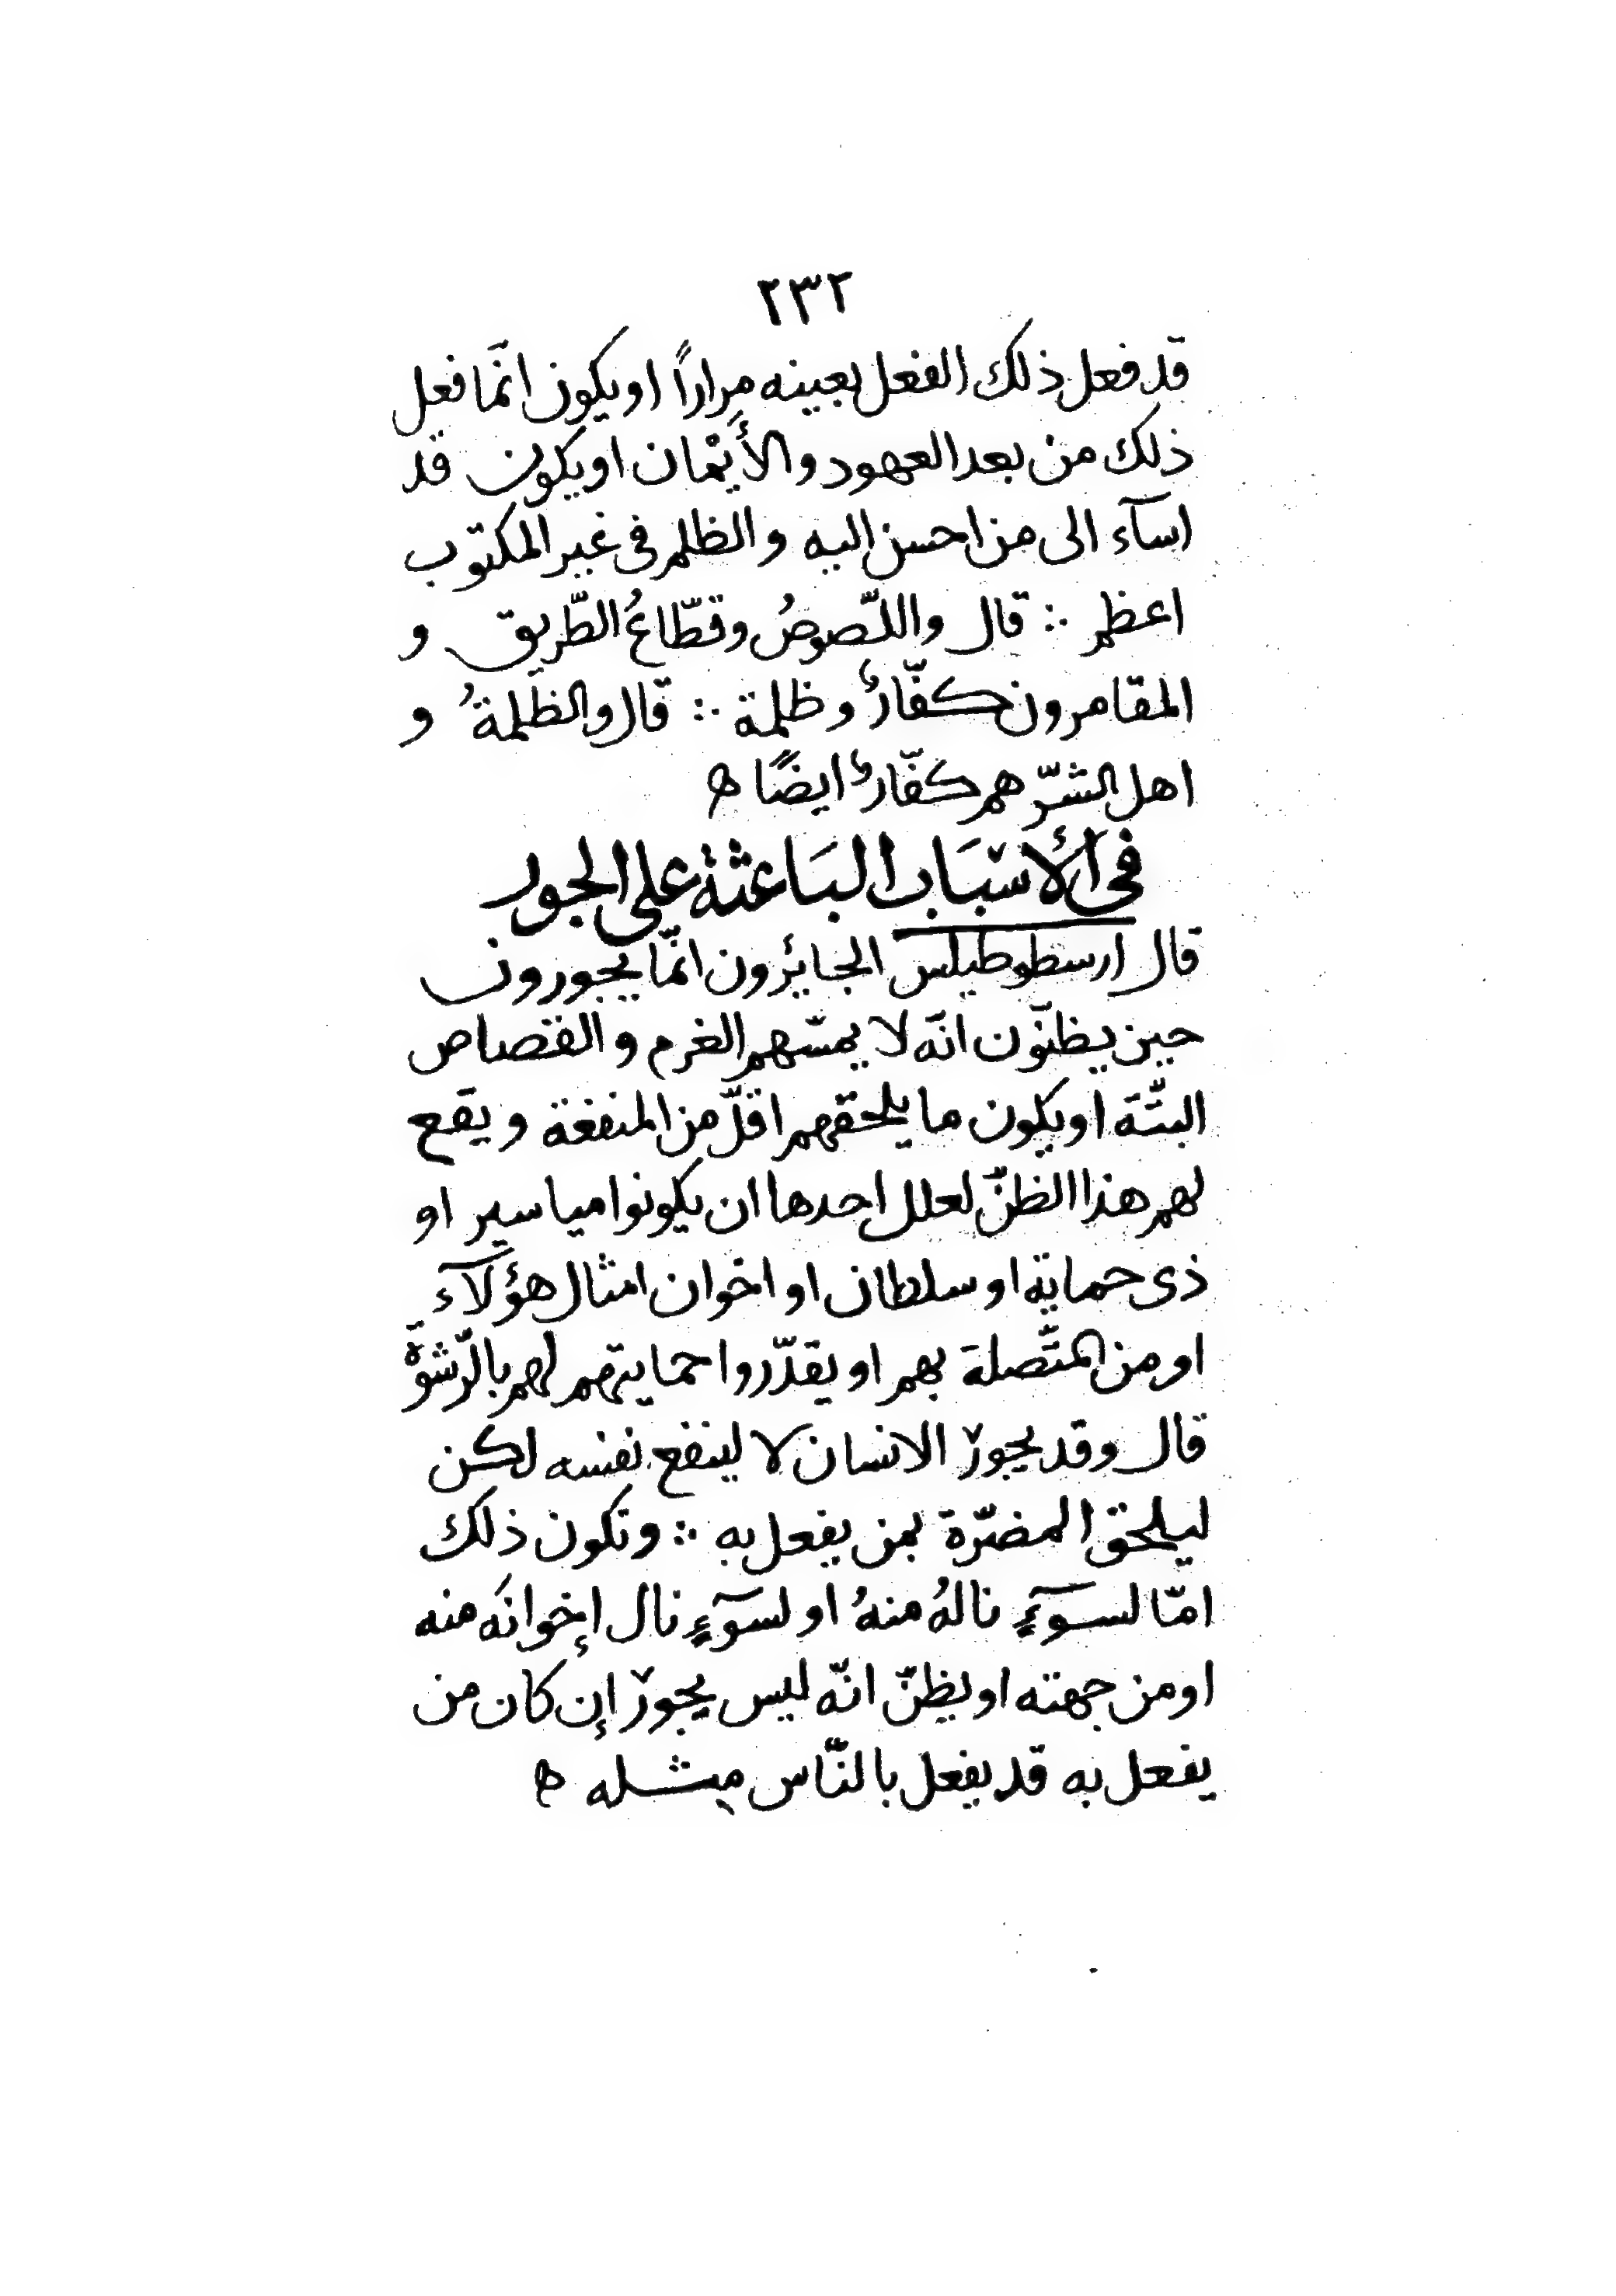 ٢٣٢
قد فعل ذلك الفعل بعينه مِراراً او يكون انّما فعل
ذلك من بعد العهود والأَيْمان او يكون قد
اسآء الى من احسن اليه والظلم فى غير المكتوب
اعظم ∴ قال واللّصوصُ وقطّاعُ الطّريق و
المقامرون كفّارٌ وظلمة ∴ قال والظّلمةُ و
اهل الشّرّ هم كفّارٌ ايضًا ه
فى الأسْبَاب البَاعثة على الجور
قال ارسطوطيلس الجائرون انّما يجورون
حين يظنّون انّه لا يمسّهم الغرم والقصاص
البتّة او يكون ما يلحقهم اقلّ من المنفعة ويقع
لهم هذا الظنّ لعلل احدها ان يكونوا مياسير او
ذى حماية او سلطان او اخوان امثال هؤلآء
او من المتّصلة بهم او يقدّروا حمايتهم لهم بالرّشوة
قال وقد يجور الانسان لا لينفع نفسه لكن
ليلحق المضرّة بمن يفعل به ∴ وتكون ذلك
امّا لسوٓءٍ نالهُ منهُ او لسوٓءٍ نال إخوانَه منه
او من جهته او يظنّ انّه ليس يجور إن كان من
يفعل به قد يفعل بالنّاس مِثله ه